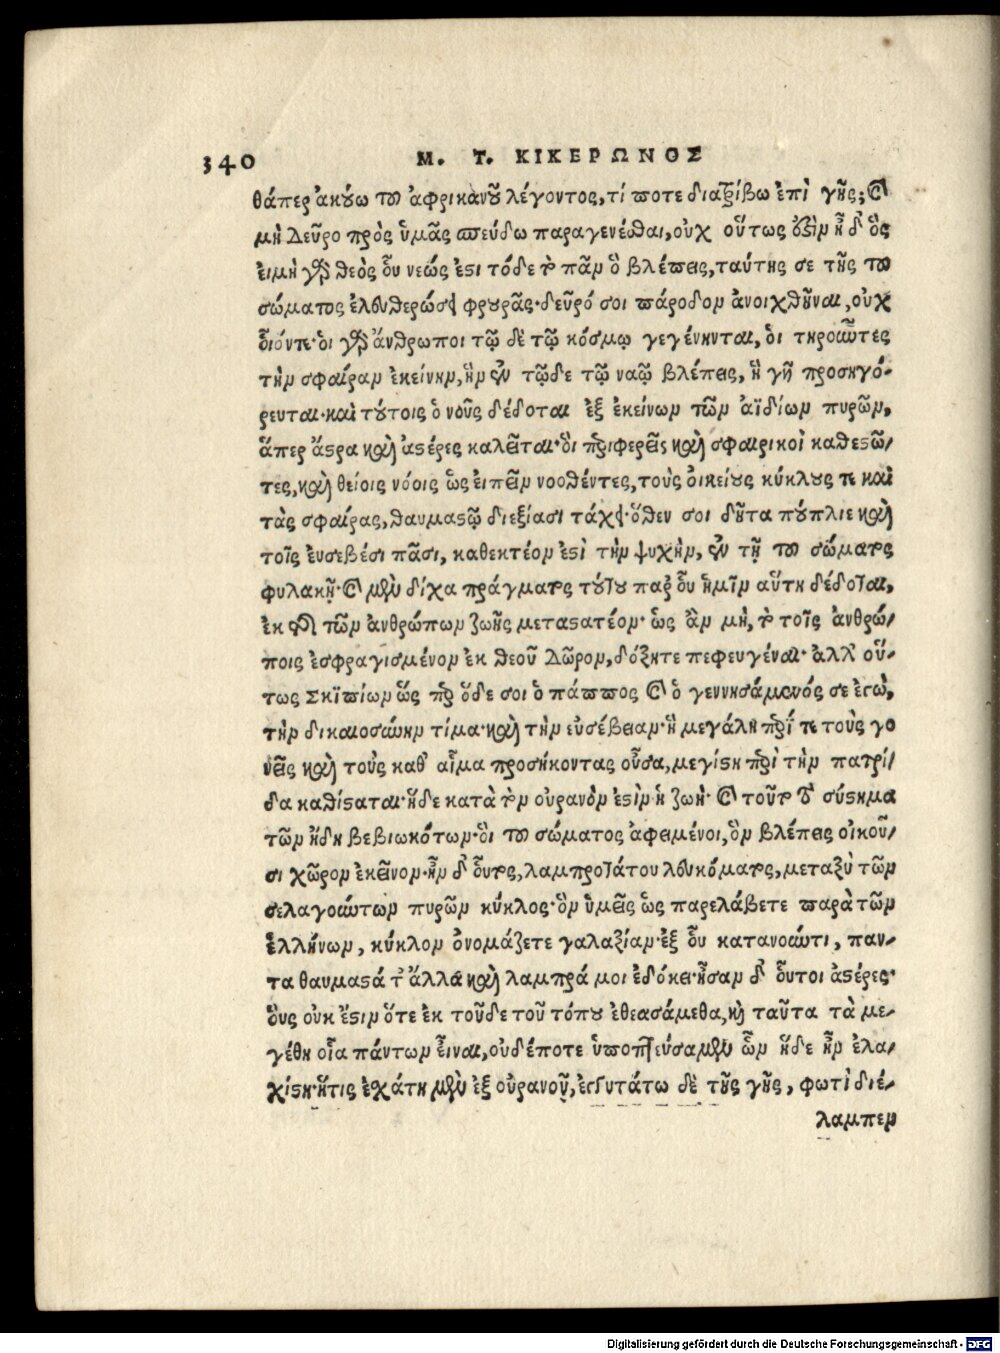 340 Μ. Τ. ΚΙΚΕΡΩΝΟΣ
θάπερ ἀκούω τοῦ ἀφρικανοῦ λέγοντος, τί ποτε διατρίβω ἐπὶ γῆς; καὶ
μὴ Δεῦρο πρὸς ὑμᾶς σπεύδω παραγενέσθαι, οὐχ οὕτως ἐστὶν ἦ δ᾽ ὃς
εἰμὴ γὰρ θεὸς οὗ νεώς ἐστι τόδε τὸ πᾶν ὃ βλέπεις, ταύτης σε τῆς τοῦ
σώματος ἐλευθερώσῃ φρουρᾶς· δεῦρό σοι πάροδον ἀνοιχθῆναι, οὐχ
οἷόντε· οἱ γὰρ ἄνθρωποι τῷ δὲ τῷ κόσμῳ γεγένηνται, οἱ τηροῦντες
τὴν σφαῖραν ἐκείνην, ἣν ἐν τῷδε τῷ ναῷ βλέπεις, ἣ γῆ προσηγό-
ρευται· καὶ τούτοις ὁ νοῦς δέδοται ἐξ ἐκείνων τῶν ἀϊδίων πυρῶν,
ἅπερ ἄστρα καὶ ἀστέρες καλεῖται· οἳ περιφερεῖς καὶ σφαιρικοὶ καθεστῶ-
τες, καὶ θείοις νόοις ὡς εἰπεῖν νοοθέντες, τοὺς οἰκείους κύκλους τε καὶ
τὰς σφαίρας, θαυμαστῷ διεξίασι τάχει· ὅθεν σοι δοῦτα πούπλιε καὶ
τοῖς εὐσεβέσι πᾶσι, καθεκτέον ἐστὶ τὴν ψυχὴν, ἐν τῇ τοῦ σώματος
φυλακῇ· καὶ μὴν δίχα πράγματος τούτου παρ᾽ οὗ ἡμῖν αὕτη δέδοται,
ἐκ τῆς τῶν ἀνθρώπων ζωῆς μεταστατέον· ὡς ἂν μὴ, τὸ τοῖς ἀνθρώ-
ποις ἐσφραγισμένον ἐκ θεοῦ Δῶρον, δόξητε πεφευγέναι· ἀλλ᾽ οὕ-
τως Σκιπίων ὥς περ ὅδε σοι ὁ πάππος καὶ ὁ γεννησάμενός σε ἐγὼ,
τὴν δικαιοσύνην τίμα· καὶ τὴν εὐσέβειαν· ἣ μεγάλη περί τε τοὺς γο
νεῖς καὶ τοὺς καθ᾽ αἷμα προσήκοντας οὖσα, μεγίστη περὶ τὴν πατρί-
δα καθίσταται· ἥδε κατὰ τὸν οὐρανὸν ἐστὶν ἡ ζωὴ· καὶ τοῦτο τὸ σύστημα
τῶν ἤδη βεβιωκότων· οἳ τοῦ σώματος ἀφειμένοι, ὃν βλέπεις οἰκοῦ-
σι χῶρον ἐκεῖνον· ἦν δ᾽ οὗτος, λαμπροτάτου λευκόματος, μεταξὺ τῶν
σελαγούντων πυρῶν κύκλος· ὃν ὑμεῖς ὡς παρελάβετε παρὰ τῶν
ἑλλήνων, κύκλον ὀνομάζετε γαλαξίαν· ἐξ οὗ κατανοοῦντι, παν-
τα θαυμαστά τ᾽ ἄλλα καὶ λαμπρά μοι ἐδόκει· ἦσαν δ᾽ οὗτοι ἀστέρες·
οὓς οὐκ ἔστιν ὅτε ἐκ τοῦδε τοῦ τόπου ἐθεασάμεθα, καὶ ταῦτα τὰ με-
γέθη οἷα πάντων εἶναι, οὐδέποτε ὑποπτεύσαμεν ὧν ἥδε ἦν ἐλα-
χίστη· ἥτις ἐχάτη μὲν ἐξ οὐρανοῦ, ἐγγυτάτω δὲ τῆς γῆς, φωτὶ διέ-
λαμπεν
Digitalisierung gefördert durch die Deutsche Forschungsgemeinschaft - DFG